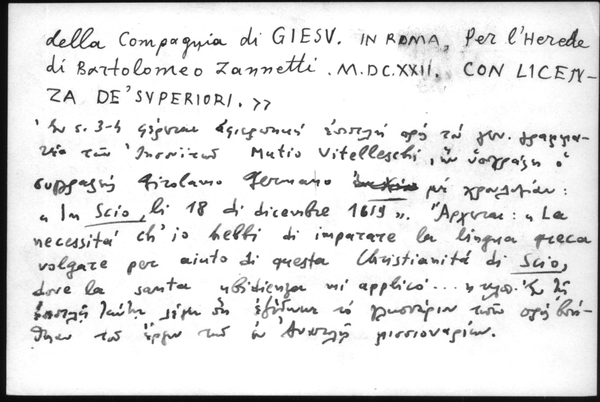 della Compagnia di GIESV. IN ROMA, Per l'Herede
di Bartolomeo Zannetti. M.DC.XXII. CON LICEN-
ZA DE' SVPERIORI. >>
Ἐν σ. 3-4 φέρεται ἀφιερωτική ἐπιστολή πρός τόν γεν. γραμμα-
τέα τῶν Ἰησουϊτῶν Mutio Vitelleschi, ἥν ὑπογράφει ὁ
συγγραφεύς Girolamo Germano μέ χρονολογίαν:
« In Scio, li 18 di dicembre 1619 ». Ἄρχεται: « La
necessità ch' io hebbi di imparare la lingua greca
volgare per aiuto di questa Christianità di Scio,
dove la santa ubidienza mi applicò... » κλπ. Ἐν τῇ
ἐπιστολῇ ταύτῃ λέγει ὅτι ἐξέδωκε τό πρός βοή-
θειαν τοῦ ἔργου τῶν ἐν Ἀνατολῇ μισσιοναρίων.